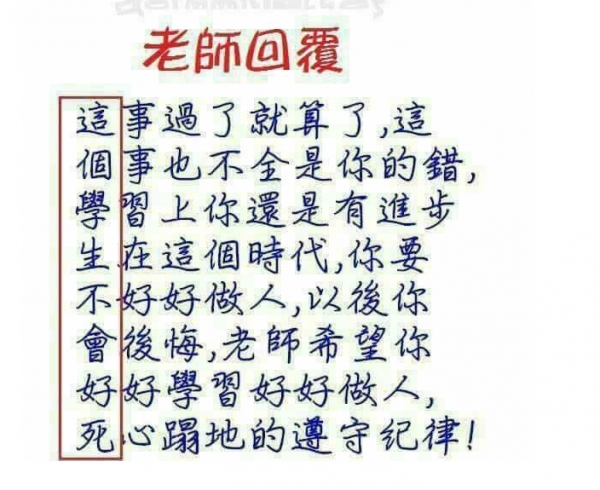 老師回覆
這事過了就算了,這
個事也不全是你的錯,
學習上你還是有進步
生在這個時代,你要
不好好做人,以後你
會後悔,老師希望你
好好學習好好做人,
死心蹋地的遵守紀律!